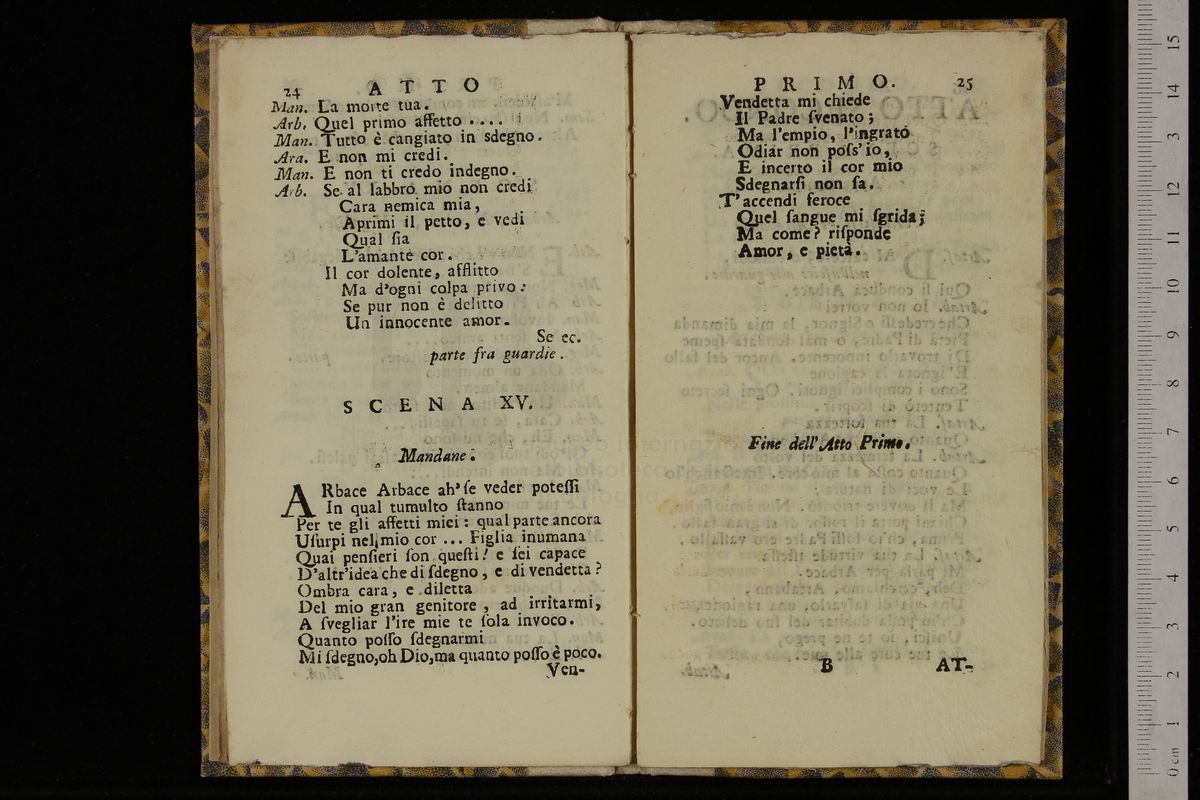 24 ATTO
Man. La morte tua.
Arb. Quel primo affetto ....
Man. Tutto è cangiato in sdegno.
Ara. E non mi credi.
Man. E non ti credo indegno.
Arb. Se al labbro mio non credi
Cara nemica mia,
Aprimi il petto, e vedi
Qual ſia
L'amante cor.
Il cor dolente, afflitto
Ma d'ogni colpa privo:
Se pur non è delitto
Un innocente amor.
Se ec.
parte fra guardie.
SCENA XV.
Mandane.
ARbace Arbace ah' ſe veder poteſſi
In qual tumulto ſtanno
Per te gli affetti miei: qual parte ancora
Uſurpi nel mio cor ... Figlia inumana
Quai penſieri ſon queſti! e ſei capace
D'altr'idea che di ſdegno, e di vendetta?
Ombra cara, e diletta
Del mio gran genitore, ad irritarmi,
A ſvegliar l'ire mie te ſola invoco.
Quanto poſſo ſdegnarmi
Mi ſdegno, oh Dio, ma quanto poſſo è poco.
Ven-
PRIMO. 25
Vendetta mi chiede
Il Padre ſvenato;
Ma l'empio, l'ingrato
Odiar non poſs'io,
E incerto il cor mio
Sdegnarſi non ſa.
T'accendi feroce
Quel ſangue mi ſgrida;
Ma come? riſponde
Amor, e pietà.
Fine dell'Atto Primo.
B AT-
0 cm 1 2 3 4 5 6 7 8 9 10 11 12 13 14 15